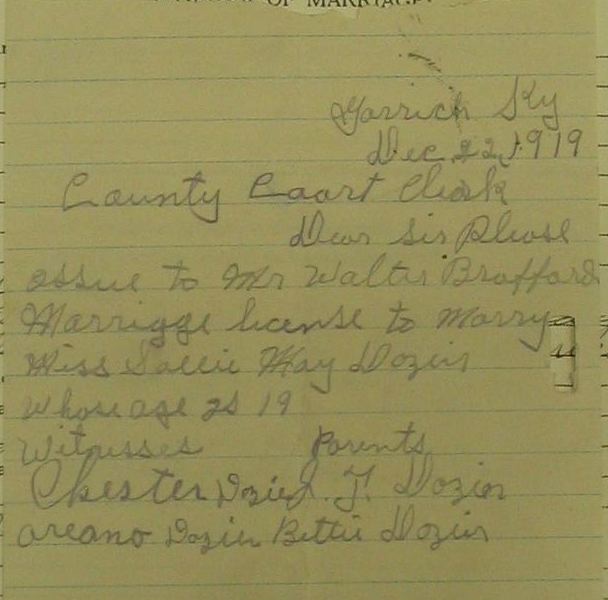 OF MARRIAGE.
Yarrich Ky
Dec 22, 1919
County Coart Clerk
Dear Sir Please
essue to Mr Walter Brafford
Marrigge license to Marry
Miss Sallie May Dozier
whose age is 19
Witnesses Parents
Chester Dozier J. F. Dozier
Dozier Bettie Dozier